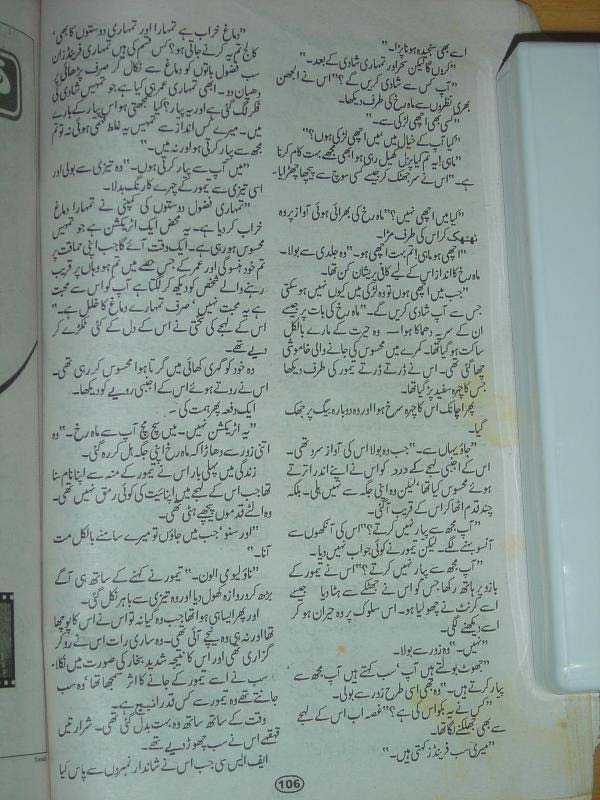 اسے بھی سنجیدہ ہونا پڑا۔"
"کروں گا لیکن سحر اور تمہاری شادی کے بعد۔"
"آپ کس سے شادی کریں گے؟" اس نے الجھن
بھری نظروں سے ماہ رخ کی طرف دیکھا۔
"کسی بھی اچھی لڑکی سے۔"
"کیا آپ کے خیال میں میں اچھی لڑکی ہوں؟"
"ماہی! یہ تم کیا پزل کھیل رہی ہو ابھی مجھے بہت کام کرنا
ہے۔" اس نے سر جھٹک کر جیسے کسی سوچ سے پیچھا چھڑایا۔
"کیا میں اچھی نہیں؟" ماہ رخ کی بھرائی ہوئی آواز پر وہ
ٹھٹھک کر اس کی طرف مڑا۔
"اچھی ہو ماہی! تم بہت اچھی ہو۔" وہ جلدی سے بولا۔
ماہ رخ کا انداز اس کے لیے کافی پریشان کن تھا۔
"جب میں اچھی ہوں تو وہ لڑکی میں کیوں نہیں ہو سکتی
جس سے آپ شادی کریں گے۔" ماہ رخ کی بات پر جیسے
ان کے سر پہ دھماکا ہوا۔ وہ حیرت کے مارے بالکل
ساکت ہو گیا تھا۔ کمرے میں محسوس کی جانے والی خاموشی
چھا گئی تھی۔ اس نے ڈرتے ڈرتے تیمور کی طرف دیکھا
جس کا چہرہ سفید پڑ گیا تھا۔
پھر اچانک اس کا چہرہ سرخ ہوا اور وہ دوبارہ بیگ پر جھک
گیا۔
"جاؤ یہاں سے۔" جب وہ بولا اس کی آواز سرد تھی۔
اس کے اجنبی لہجے کے درد کو اس نے اپنے اندر اترتے
ہوئے محسوس کیا تھا لیکن وہ اپنی جگہ سے نہیں ہلی۔ بلکہ
چند قدم اٹھا کر اس کے قریب آ گئی۔
"آپ مجھ سے پیار نہیں کرتے؟" اس کی آنکھوں سے
آنسو بہنے لگے۔ لیکن تیمور نے کوئی جواب نہیں دیا۔
"آپ مجھ سے پیار نہیں کرتے؟" اس نے تیمور کے
بازو پر ہاتھ رکھا جس کو اس نے جھٹکے سے ہٹا دیا جیسے
اسے کرنٹ نے چھو لیا ہو۔ اس سلوک پر وہ حیران ہو کر
اسے دیکھنے لگی۔
"نہیں۔" وہ زور سے بولا۔
"جھوٹ بولتے ہیں آپ، سب کہتے ہیں آپ مجھ سے
پیار کرتے ہیں۔" وہ بھی اسی طرح زور سے بولی۔
"کس نے یہ بکواس کی ہے؟" غصہ اب اس کے لہجے
سے بھی جھلکنے لگا تھا۔
"میری سب فرینڈز کہتی ہیں۔"
"دماغ خراب ہے تمہارا اور تمہاری دوستوں کا بھی،
کالج تم یہ کرنے جاتی ہو؟ کس قسم کی ہیں تمہاری فرینڈز ان
سب فضول باتوں کو دماغ سے نکال کر صرف پڑھائی پر
دھیان دو۔ ابھی تمہاری عمر ہی کیا ہے جو تمہیں شادی کی
فکر لگ گئی ہے اور یہ پیار؟ کیا سمجھتی ہو اس پیار کے بارے
میں۔ میرے کس انداز سے تمہیں یہ غلط فہمی ہوئی نہ تو تم
مجھ سے پیار کرتی ہو اور نہ میں۔"
"میں آپ سے پیار کرتی ہوں۔" وہ تیزی سے بولی اور
اسی تیزی سے تیمور کے چہرے کا رنگ بدلا۔
"تمہاری فضول دوستوں کی کمپنی نے تمہارا دماغ
خراب کر دیا ہے۔ یہ محض ایک اٹریکشن ہے جو تمہیں
محسوس ہو رہی ہے۔ ایک وقت آئے گا جب اپنی حماقت پر
تم خود ہنسو گی اور عمر کے جس حصے میں تم ہو وہاں ہر قریب
رہنے والے شخص کو دیکھ کر لگتا ہے آپ کو اس سے محبت
ہے یہ محبت نہیں، صرف تمہارے دماغ کا خلل ہے۔"
اس کے لہجے کی سختی نے اس کے دل کے کئی ٹکڑے کر
دیے تھے۔
وہ خود کو گہری کھائی میں گرتا ہوا محسوس کر رہی تھی۔
اس نے روتے ہوئے اس کے اجنبی رویے کو دیکھا۔
ایک دفعہ پھر ہمت کی۔
"یہ اٹریکشن نہیں۔ میں سچ مچ آپ سے ماہ رخ۔" وہ
اتنی زور سے دھاڑا کہ ماہ رخ اپنی جگہ ہل کر رہ گئی۔
زندگی میں پہلی بار اس نے تیمور کے منہ سے اپنا نام سنا
تھا جب اس کے لہجے میں اپنائیت کی کوئی رمق نہیں تھی۔
وہ الٹے قدموں پیچھے ہٹی تھی۔
"اور سنو، جب میں جاؤں تو میرے سامنے بالکل مت
آنا۔"
"ناؤ لیو می الون۔" تیمور نے کہنے کے ساتھ ہی آگے
بڑھ کر دروازہ کھول دیا اور وہ تیزی سے باہر نکل گئی۔
اور پھر ایسا ہی ہوا تھا جب وہ گیا نہ تو اس نے اس کا پوچھا
تھا اور نہ ہی وہ نیچے آئی تھی۔ وہ ساری رات اس نے رو کر
گزاری تھی اور اس کا نتیجہ شدید بخار کی صورت میں نکلا۔
سب نے اسے تیمور کے جانے کا اثر سمجھا تھا، وہ سب
جانتے تھے وہ تیمور سے کس قدر اٹیچ ہے۔
وقت کے ساتھ ساتھ وہ بہت بدل گئی تھی۔ شرارتیں
قہقہے اس نے سب چھوڑ دیے تھے۔
ایف ایس سی جب اس نے شاندار نمبروں سے پاس کیا
106